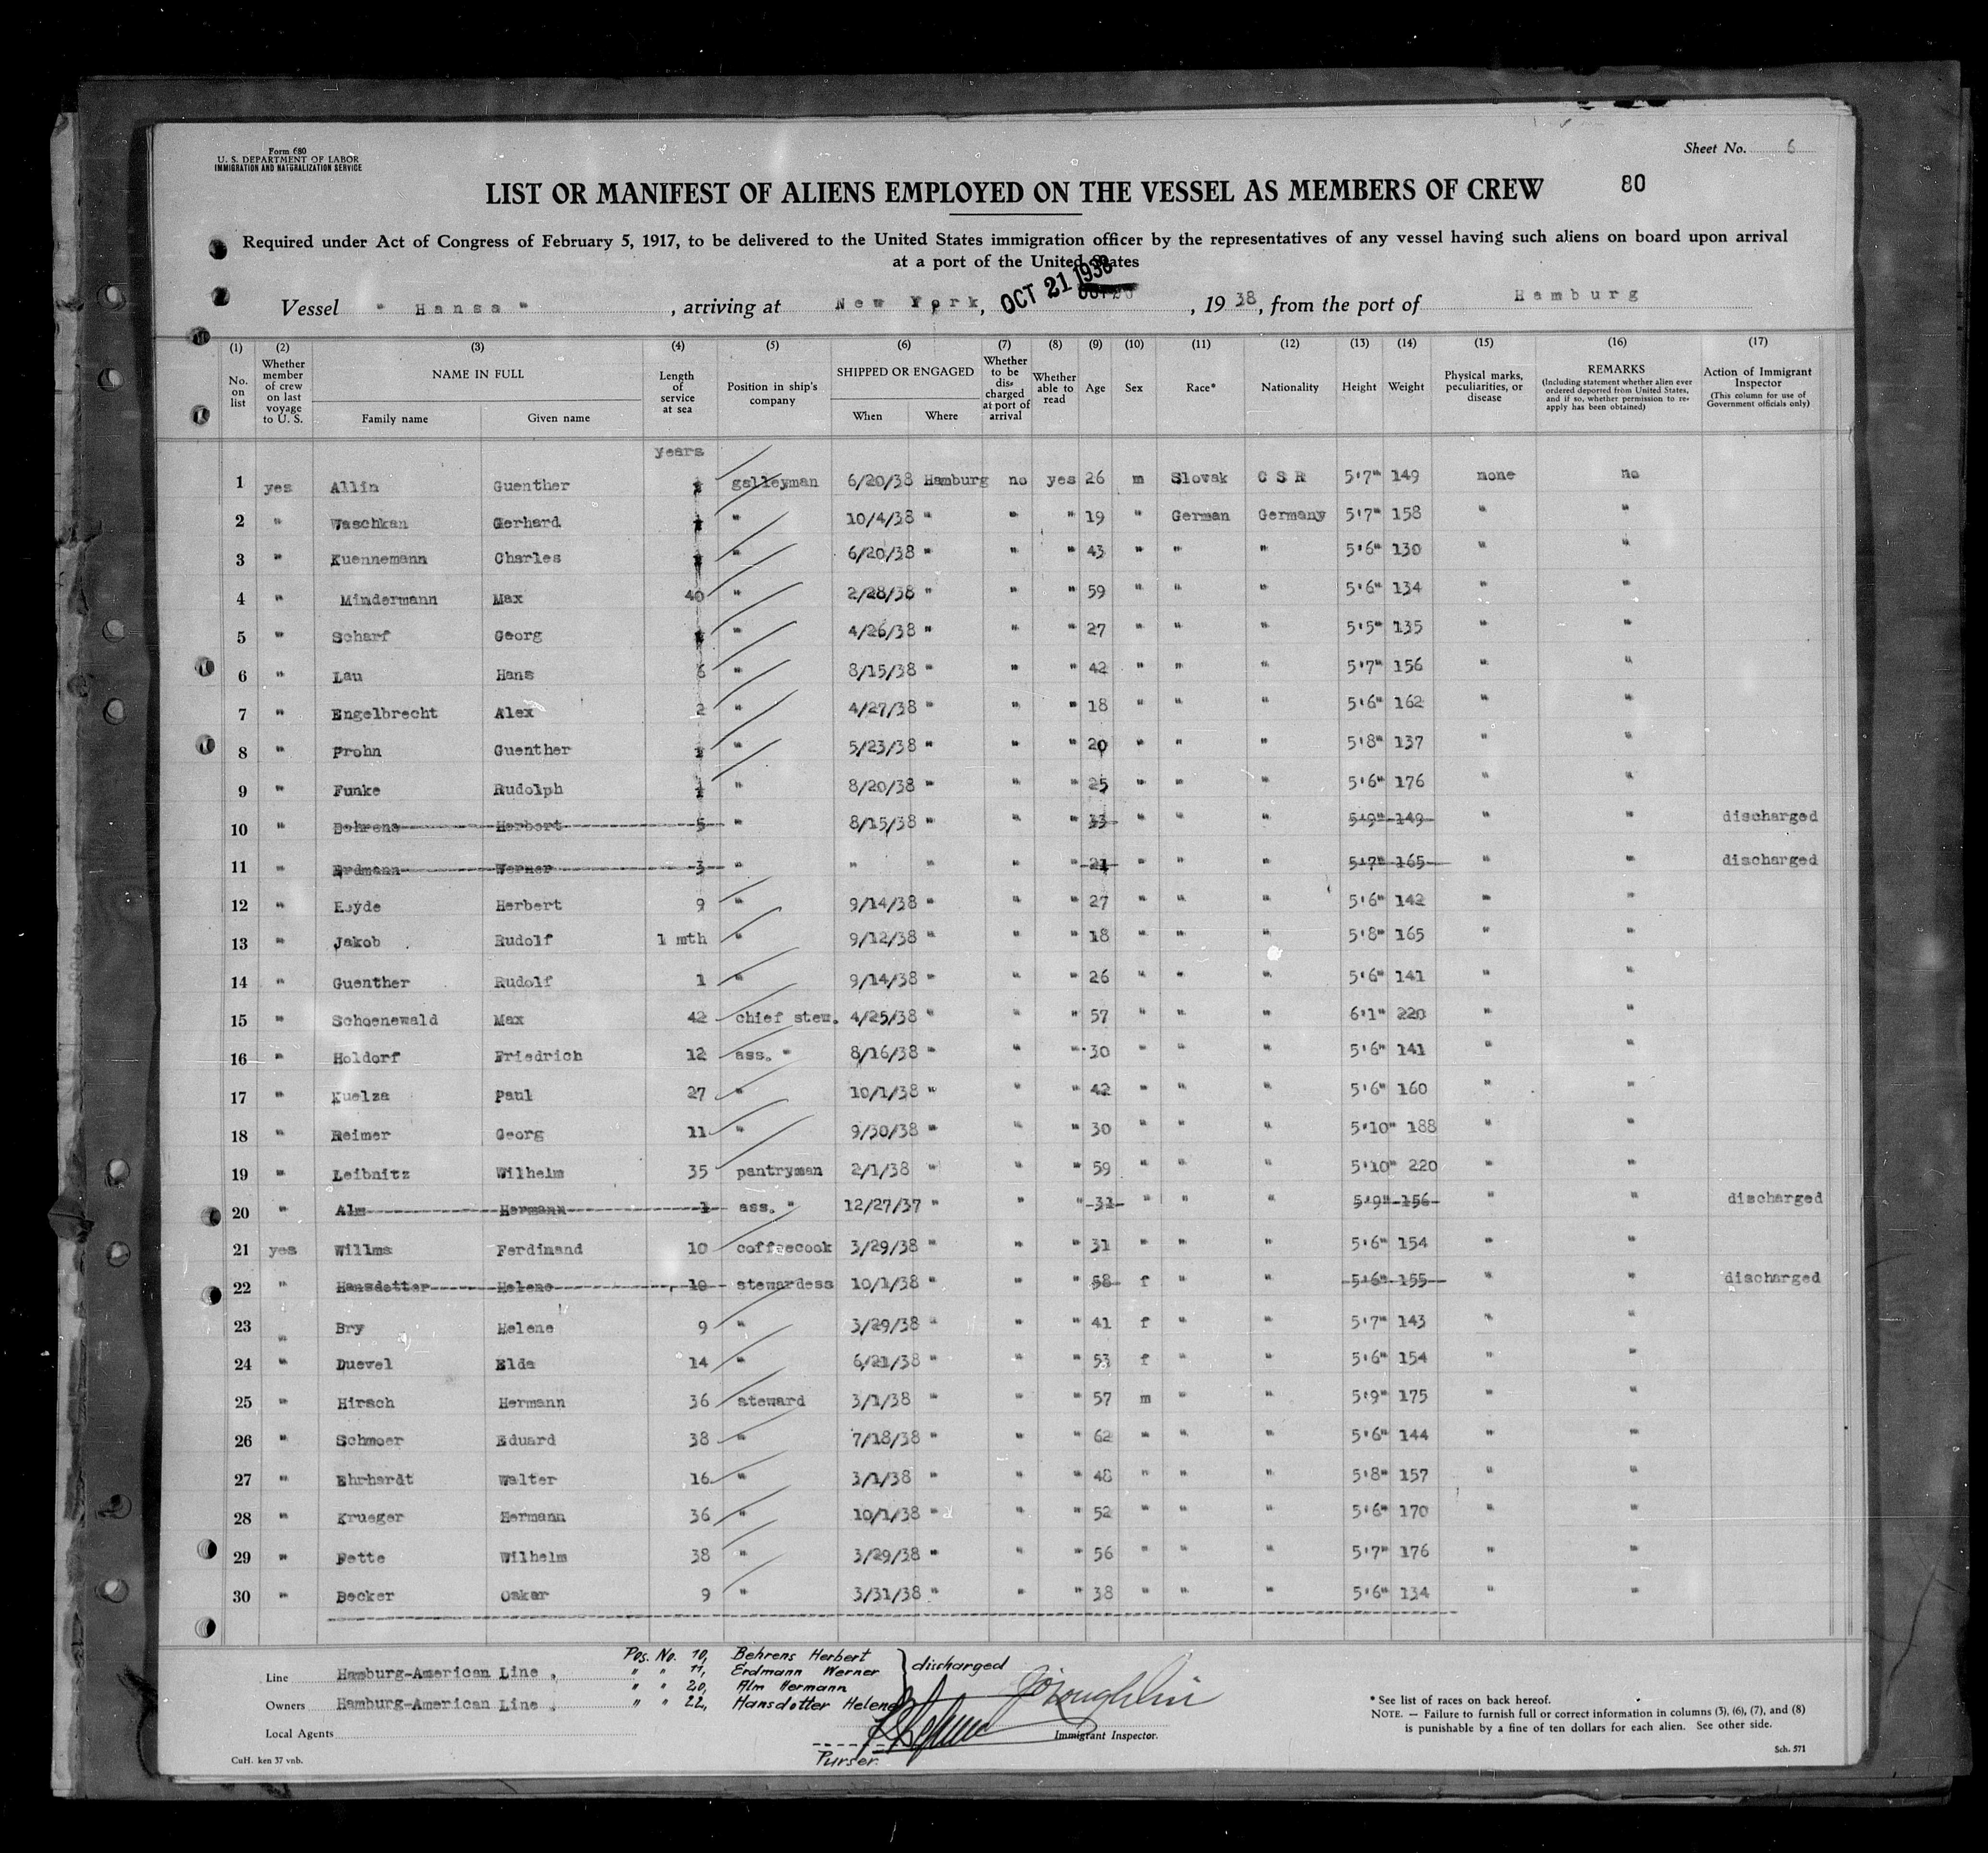 Form 680
U. S. DEPARTMENT OF LABOR
IMMIGRATION AND NATURALIZATION SERVICE
Sheet No. 6
LIST OR MANIFEST OF ALIENS EMPLOYED ON THE VESSEL AS MEMBERS OF CREW 80
Required under Act of Congress of February 5, 1917, to be delivered to the United States immigration officer by the representatives of any vessel having such aliens on board upon arrival
at a port of the United States
Vessel " Hansa " , arriving at New York, OCT 21 1938 , 19 38, from the port of Hamburg
(1) (2) (3) (4) (5) (6) (7) (8) (9) (10) (11) (12) (13) (14) (15) (16) (17)
No. on list
Whether member of crew on last voyage to U. S.
NAME IN FULL
Family name Given name
Length of service at sea
Position in ship's company
SHIPPED OR ENGAGED
When Where
Whether to be discharged at port of arrival
Whether able to read
Age Sex Race* Nationality Height Weight
Physical marks, peculiarities, or disease
REMARKS
(Including statement whether alien ever ordered deported from United States, and if so, whether permission to re-apply has been obtained)
Action of Immigrant Inspector
(This column for use of Government officials only)
years
1 yes Allin Guenther galleyman 6/20/38 Hamburg no yes 26 m Slovak C S R 5'7" 149 none no
2 " Waschkan Gerhard " 10/4/38 " " " 19 " German Germany 5'7" 158 " "
3 " Kuennemann Charles " 6/20/38 " " " 43 " " " 5'6" 130 " "
4 " Mindermann Max 40 " 2/28/38 " " " 59 " " " 5'6" 134 " "
5 " Scharf Georg " 4/26/38 " " " 27 " " " 5'5" 135 " "
6 " Lau Hans 6 " 8/15/38 " " " 42 " " " 5'7" 156 " "
7 " Engelbrecht Alex 2 " 4/27/38 " " " 18 " " " 5'6" 162 " "
8 " Prohn Guenther " 5/23/38 " " " 20 " " " 5'8" 137 " "
9 " Funke Rudolph " 8/20/38 " " " 25 " " " 5'6" 176 " "
10 " Behrens Herbert 5 " 8/15/38 " " " 33 " " " 5'9" 149 " " discharged
11 " Erdmann Werner 3 " " " " " 21 " " " 5'7" 165 " " discharged
12 " Heyde Herbert 9 " 9/14/38 " " " 27 " " " 5'6" 142 " "
13 " Jakob Rudolf 1 mth " 9/12/38 " " " 18 " " " 5'8" 165 " "
14 " Guenther Rudolf 1 " 9/14/38 " " " 26 " " " 5'6" 141 " "
15 " Schoenewald Max 42 chief stew. 4/25/38 " " " 57 " " " 6'1" 220 " "
16 " Holdorf Friedrich 12 ass. " 8/16/38 " " " 30 " " " 5'6" 141 " "
17 " Kuelza Paul 27 " 10/1/38 " " " 42 " " " 5'6" 160 " "
18 " Reimer Georg 11 " 9/30/38 " " " 30 " " " 5'10" 188 " "
19 " Leibnitz Wilhelm 35 pantryman 2/1/38 " " " 59 " " " 5'10" 220 " "
20 " Alm Hermann 1 ass. " 12/27/37 " " " 31 " " " 5'9" 156 " " discharged
21 yes Willms Ferdinand 10 coffeecook 3/29/38 " " " 31 " " " 5'6" 154 " "
22 " Hansdotter Helene 10 stewardess 10/1/38 " " " 58 f " " 5'6" 155 " " discharged
23 " Bry Helene 9 " 3/29/38 " " " 41 f " " 5'7" 143 " "
24 " Duevel Elda 14 " 6/21/38 " " " 53 f " " 5'6" 154 " "
25 " Hirsch Hermann 36 steward 3/1/38 " " " 57 m " " 5'9" 175 " "
26 " Schmoer Eduard 38 " 7/18/38 " " " 62 " " " 5'6" 144 " "
27 " Ehrhardt Walter 16 " 3/1/38 " " " 48 " " " 5'8" 157 " "
28 " Krueger Hermann 36 " 10/1/38 " " " 52 " " " 5'6" 170 " "
29 " Fette Wilhelm 38 " 3/29/38 " " " 56 " " " 5'7" 176 " "
30 " Becker Oskar 9 " 3/31/38 " " " 38 " " " 5'6" 134 " "
Pos. No. 10, Behrens Herbert
" " 11, Erdmann Werner
" " 20, Alm Hermann
" " 22, Hansdotter Helene
discharged
Line Hamburg-American Line ,
Owners Hamburg-American Line ,
Local Agents
Purser.
Immigrant Inspector.
* See list of races on back hereof.
NOTE. — Failure to furnish full or correct information in columns (3), (6), (7), and (8)
is punishable by a fine of ten dollars for each alien. See other side.
CuH. ken 37 vnb.
Sch. 571